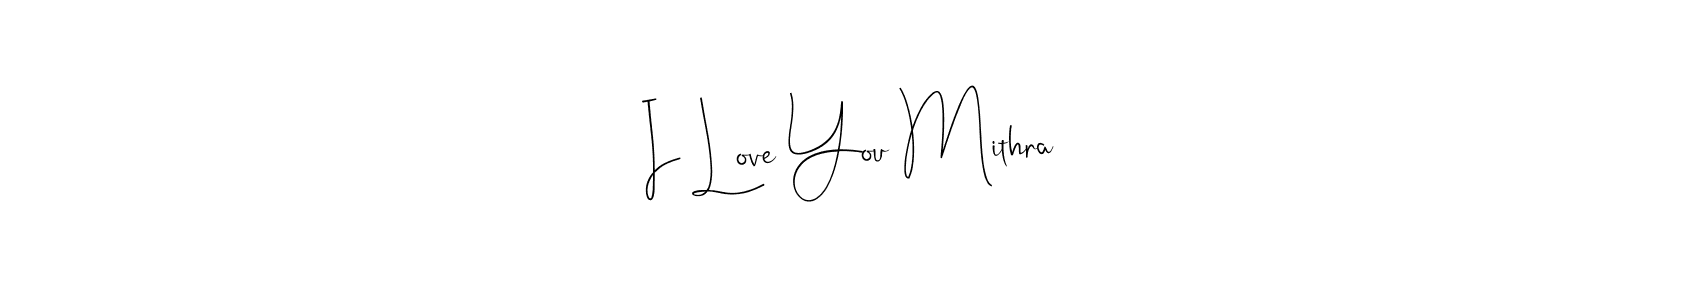 I Love You Mithra